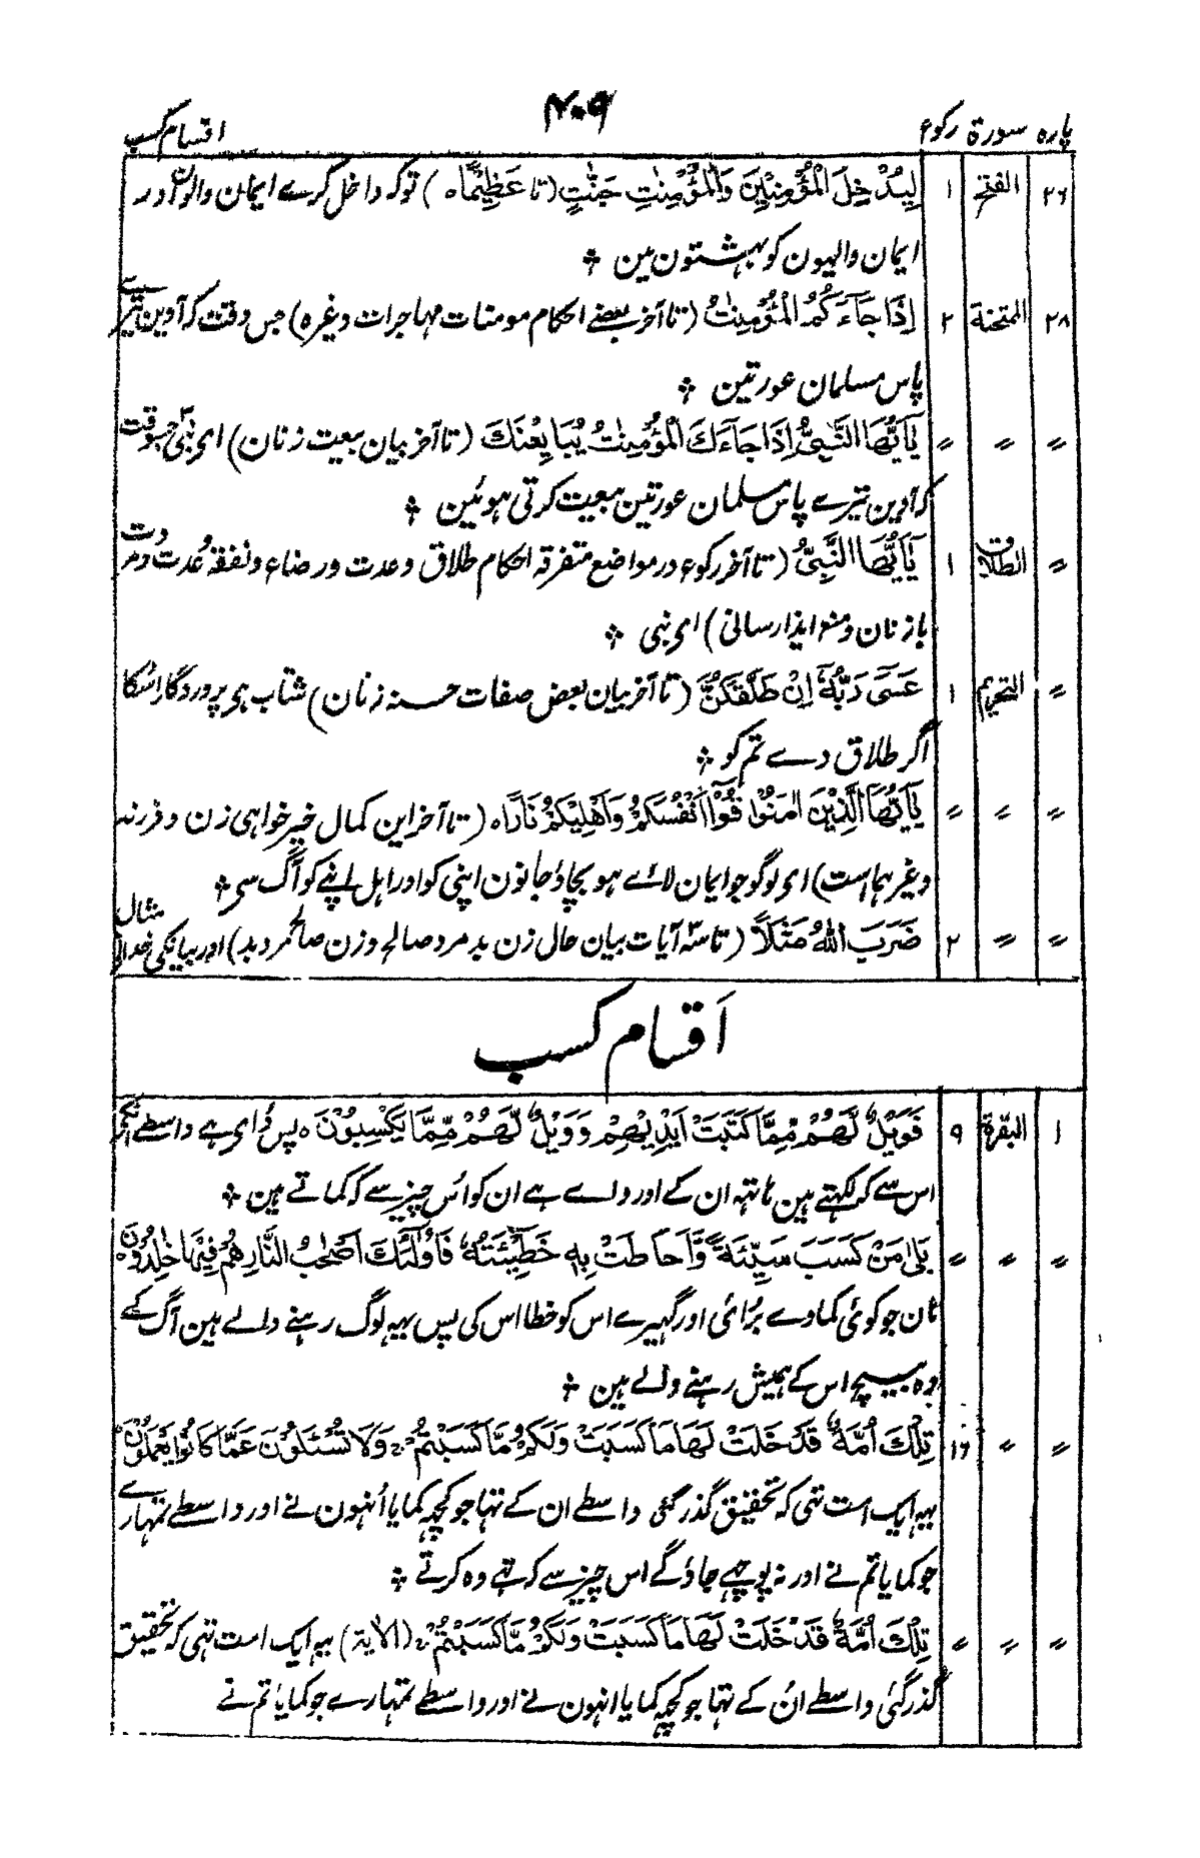 پارہ سورۃ رکوع ۴۰۹ اقسام کسب
۲۶ الفتح ۱ لِيُدْخِلَ الْمُؤْمِنِيْنَ وَالْمُؤْمِنٰتِ جَنّٰتٍ (تا عَظِيْمًا ہ) توکہ داخل کرے ایمان والون اور
ایمان والیون کو بہشتون مین ÷
۲۸ الممتحنۃ ۲ اِذَا جَآءَكُمُ الْمُؤْمِنٰتُ (تا آخر بعضے احکام مومنات مہاجرات وغیرہ) جس وقت کہ آوین تیرے
پاس مسلمان عورتین ÷
〃 〃 〃 يٰٓاَيُّهَا النَّبِيُّ اِذَا جَآءَكَ الْمُؤْمِنٰتُ يُبَايِعْنَكَ (تا آخر بیان بیعت زنان) ای نبی جسوقت
کہ آوین تیرے پاس مسلمان عورتین بیعت کرتی ہوئین ÷
〃 الطلاق ۱ يٰٓاَيُّهَا النَّبِيُّ (تا آخر رکوع در مواضع متفرقہ احکام طلاق وعدت ورضاع ونفقۂ عدت
بازنان ومنع ایذا رسانی) ای نبی ÷
〃 التحریم ۱ عَسٰى رَبُّهٗٓ اِنْ طَلَّقَكُنَّ (تا آخر بیان بعض صفات حسنہ زنان) شتاب ہی پروردگار اسکا
اگر طلاق دے تم کو ÷
〃 〃 〃 يٰٓاَيُّهَا الَّذِيْنَ اٰمَنُوْا قُوْٓا اَنْفُسَكُمْ وَاَهْلِيْكُمْ نَارًا ہ (تا آخر این کمال خیرخواہی زن و فرزند
وغیرہما است) ای لوگو جو ایمان لائے ہو بچاؤ جانون اپنی کو اور اہل اپنے کو آگ سی ÷
〃 〃 ۲ ضَرَبَ اللّٰهُ مَثَلًا (تا سہ آیات بیان حال زن بد مرد صالح وزن صالحہ مرد بد) اور بیان کی خدا نے مثال
اَقسام کسب
۱ البقرۃ ۹ فَوَيْلٌ لَّهُمْ مِّمَّا كَتَبَتْ اَيْدِيْهِمْ وَوَيْلٌ لَّهُمْ مِّمَّا يَكْسِبُوْنَ ہ پس وای ہے واسطے انکے
اس سے کہ لکہتے ہین ہاتہہ ان کے اور واے ہے ان کو اُس چیز سے کہ کماتے ہین ÷
〃 〃 〃 بَلٰى مَنْ كَسَبَ سَيِّئَةً وَّاَحَاطَتْ بِهٖ خَطِيْٓئَتُهٗ فَاُولٰٓئِكَ اَصْحٰبُ النَّارِ هُمْ فِيْهَا خٰلِدُوْنَ ہ
ہان جو کوئی کماوے بُرائی اور گہیرے اس کو خطا اس کی پس یہہ لوگ رہنے والے ہین آگ کے
وہ بیچ اس کے ہمیش رہنے والے ہین ÷
〃 〃 ۱۶ تِلْكَ اُمَّةٌ قَدْ خَلَتْ لَهَا مَا كَسَبَتْ وَلَكُمْ مَّا كَسَبْتُمْ وَلَا تُسْئَلُوْنَ عَمَّا كَانُوْا يَعْمَلُوْنَ
یہہ ایک امت تہی کہ تحقیق گذر گئی واسطے ان کے تہا جو کچہہ کمایا اُنہون نے اور واسطے تمہارے
جو کمایا تم نے اور نہ پوچہے جاؤگے اس چیز سے کہ تہے وہ کرتے ÷
〃 〃 〃 تِلْكَ اُمَّةٌ قَدْ خَلَتْ لَهَا مَا كَسَبَتْ وَلَكُمْ مَّا كَسَبْتُمْ (الآیۃ) یہہ ایک امت تہی کہ تحقیق
گذر گئی واسطے اُن کے تہا جو کچہہ کمایا انہون نے اور واسطے تمہارے جو کمایا تم نے